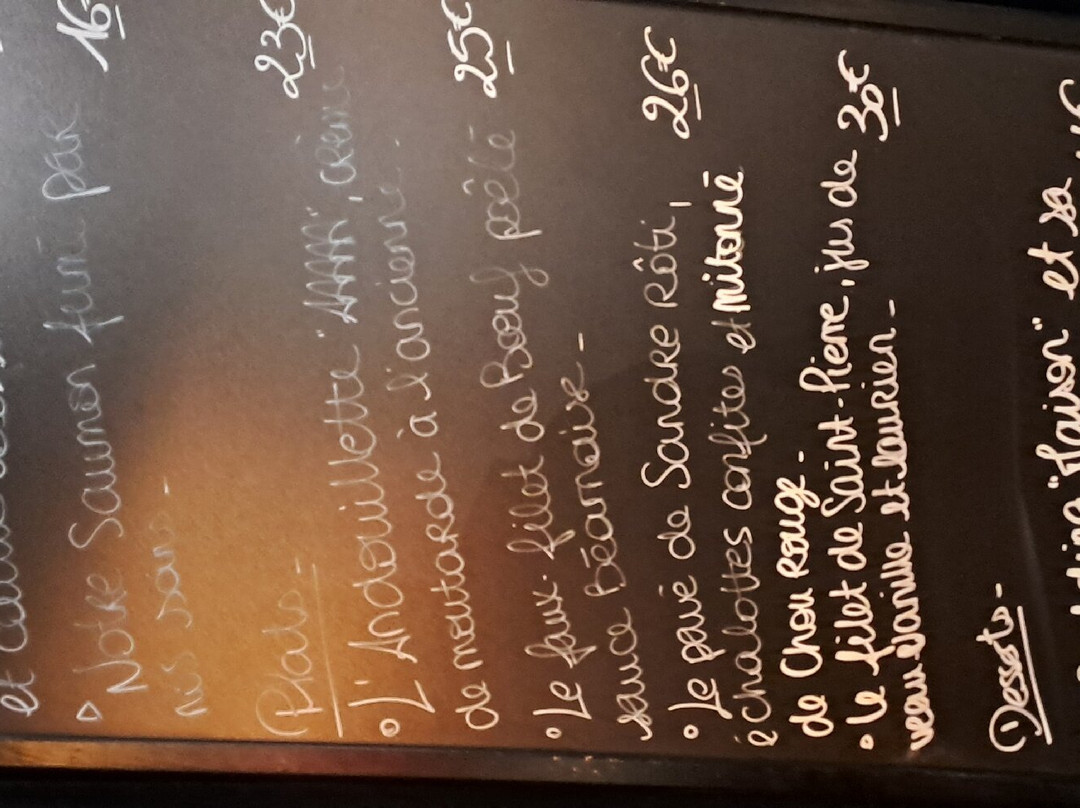 et
▷ Notre Saumon fumé par 16
nos soins-
Plats-
° L'Andouillette "AAAAA", crème 23€
de moutarde à l'ancienne.
° Le faux-filet de Boeuf poêlé 25€
sauce Béarnaise-
° Le pavé de Sandre Rôti, 26€
échalottes confites et mitonné
de Chou Rouge-
• Le filet de Saint-Pierre, jus de 30€
veau Vanille et laurier-
Desserts-
"Maison" et sa